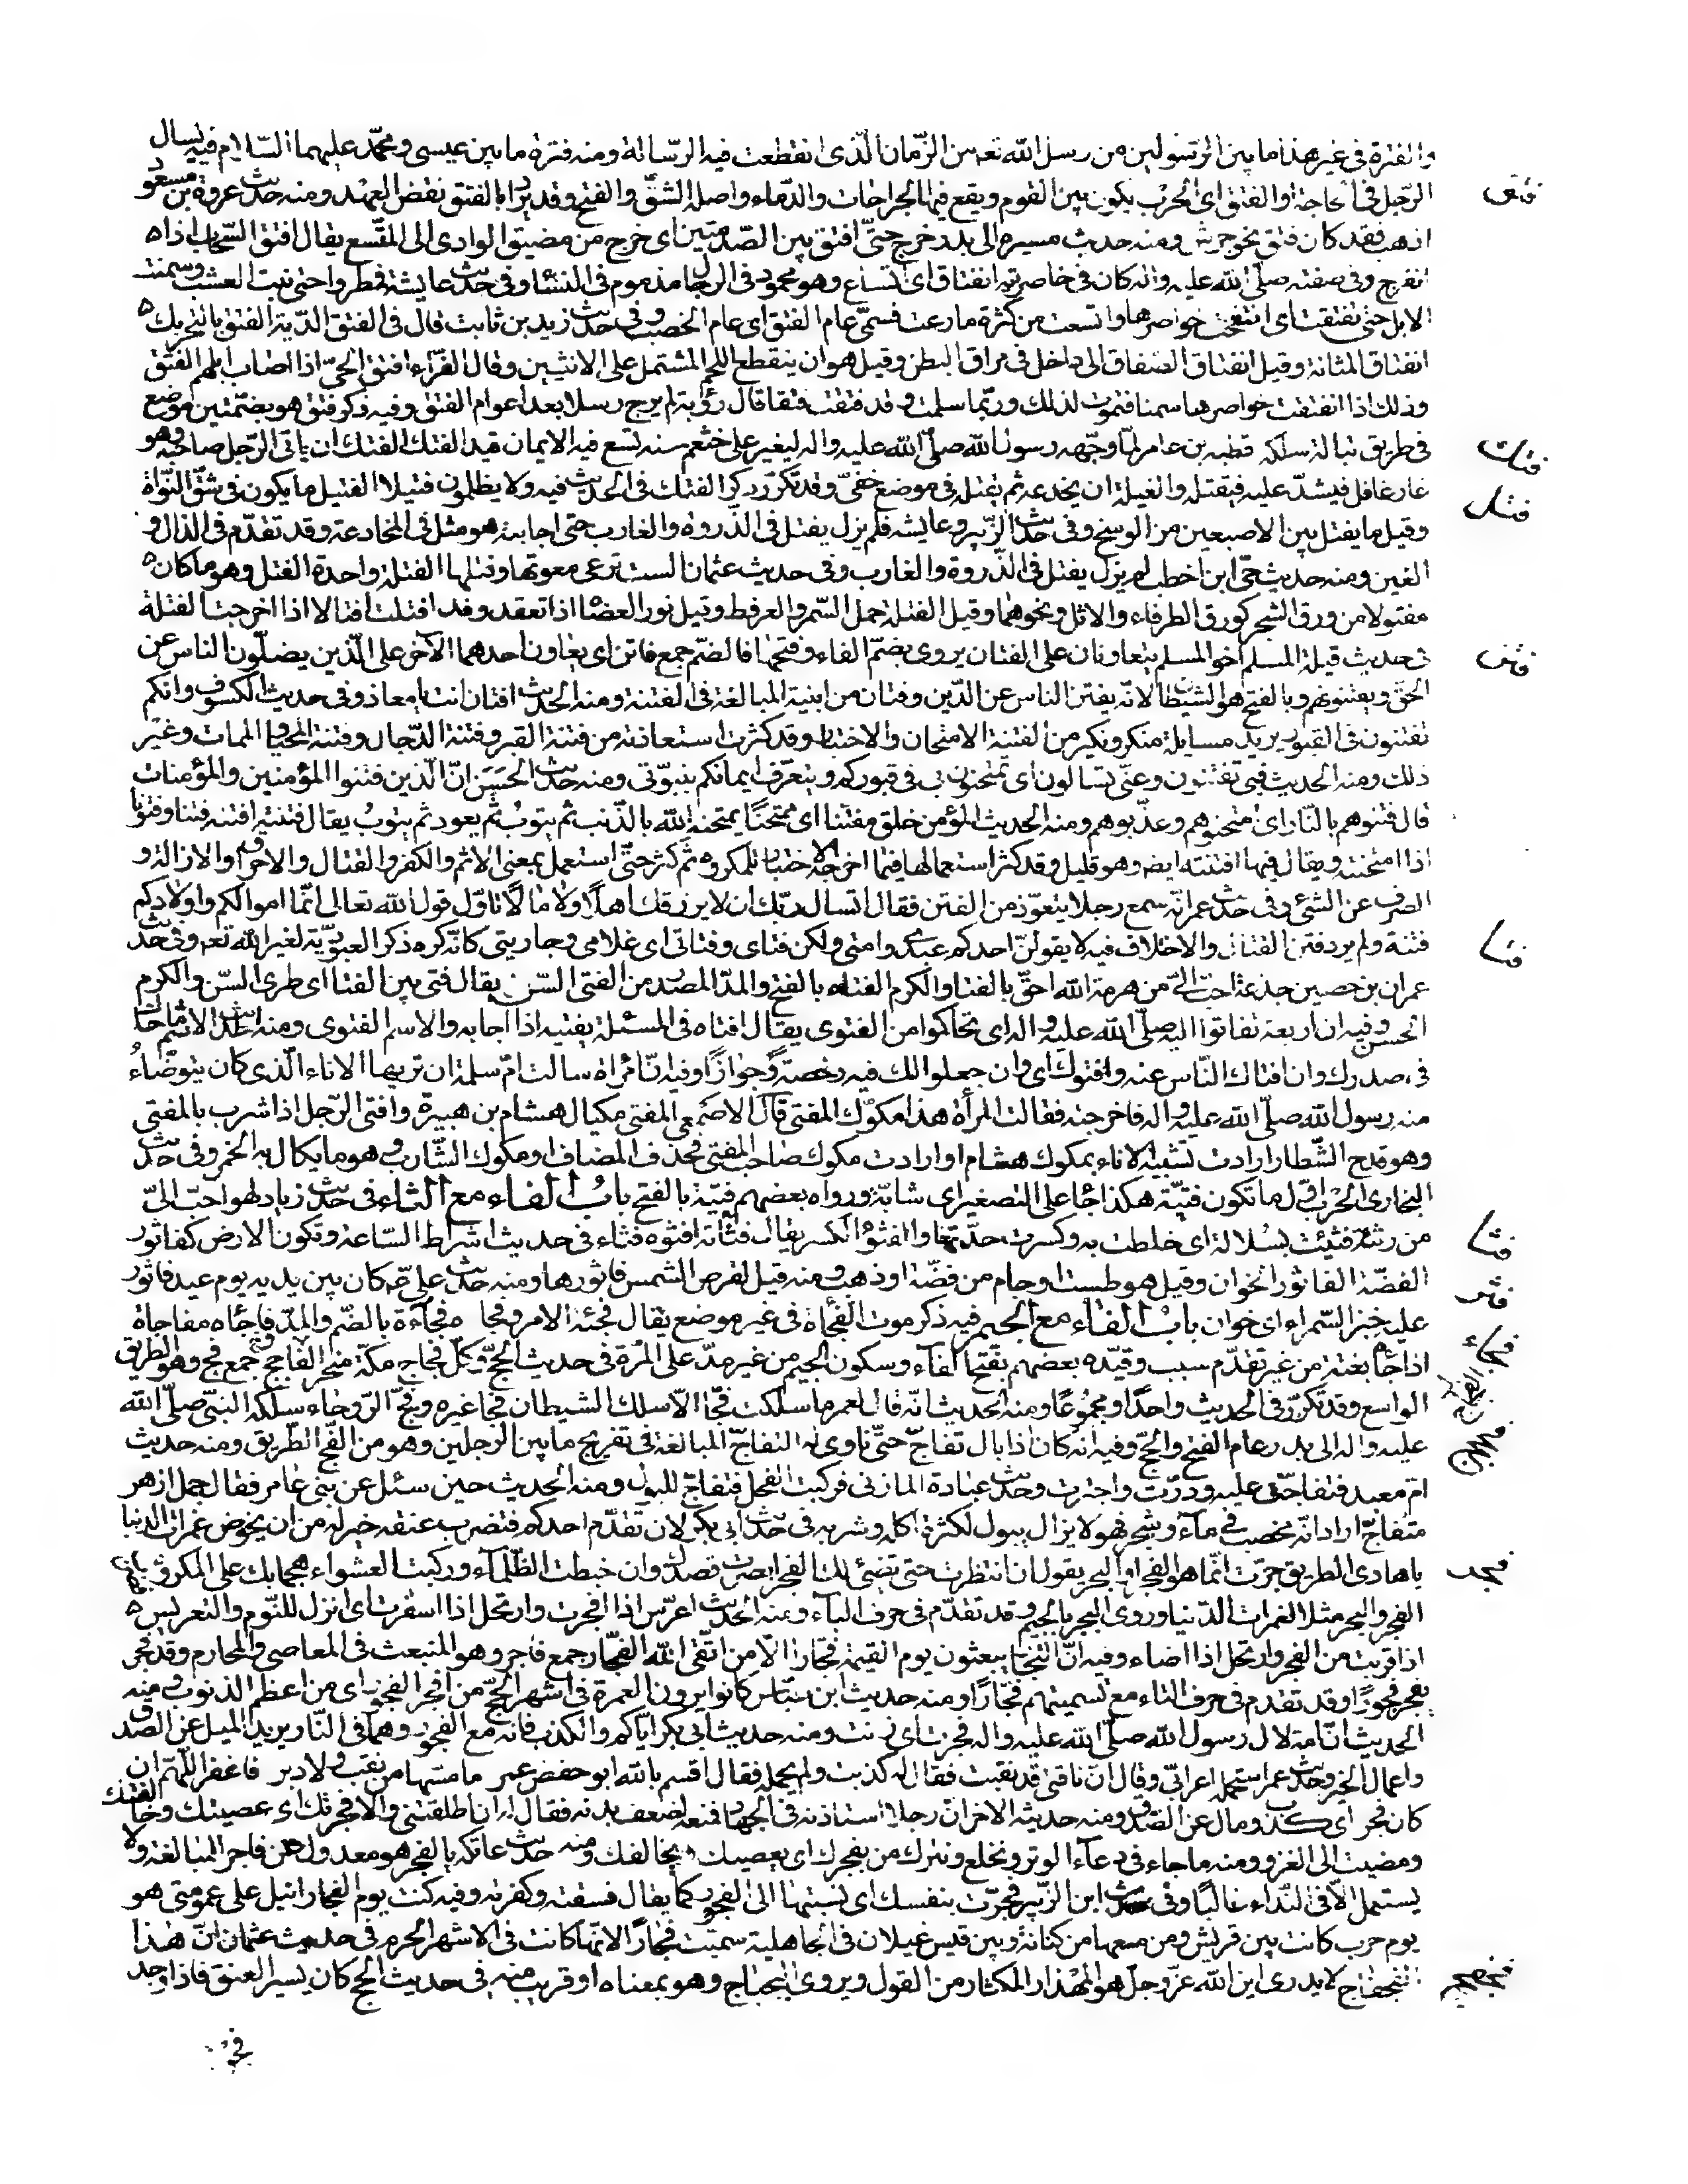 والفترة فى غير هذا ما بين الرسولين من رسل الله تعه من الزّمان الّذى انقطعت فيه الرّسالة ومنه فترة ما بين عيسى ومحمّد عليهما السّلام فيه يسال
فتق
الرّجل فى الحاجة او الفتق اى الحرب يكون بين القوم ويقع فيها الجراحات والدّماء واصله الشقّ والفتح وقد يراد بالفتق نقض العهد ومنه حديث عروة بن مسعود
اذهب فقد كان فتق نحو جرش ومنه حديث مسيره الى بدر خرج حتّى افتق بين الصّدمتين اى خرج من مضيق الوادى الى المتّسع يقال افتق السّحاب اذا
انفرج وفى صفته صلّى الله عليه واله كان فى خاصرتيه انفتاق اى اتساع وهو محمود فى الرجال مذموم فى النساء وفى حديث عايشة فمطروا حتى نبت العشب وسمنت
الابل حتى تفتقت اى انتفخت خواصرها واتسعت من كثرة ما رعت فسمّى عام الفتق اى عام الخصب وفى حديث زيد بن ثابت قال فى الفتق الدّية الفتق بالتحريك
انفتاق المثانة وقيل انفتاق الصفاق الى داخل فى مراق البطن وقيل هو ان ينقطع اللحم المشتمل على الانثيين وقال الفرّاء افتق الحىّ اذا اصاب ابلهم الفتق
وذلك اذا انفتقت خواصرها سمنا فتموت لذلك وربّما سلمت وقد فتقت فتقا قال رؤبة لم يرج رسلا بعد اعوام الفتق وفيه ذكر فتق هو بضمّتين موضع
فتك
فى طريق تبالة سلكه قطبه بن عامر لمّا وجّهه رسول الله صلّى الله عليه واله ليغير على خثعم سنه تسع فيه الايمان قيد الفتك الفتك ان ياتى الرّجل صاحبه وهو
غار غافل فيشدّ عليه فيقتله والغيلة ان يخدعه ثم يقتله فى موضع خفىّ وقد تكرّر ذكر الفتك فى الحديث فيه ولا يظلمون فتيلا الفتيل ما يكون فى شقّ النّواة
فتل
وقيل ما يفتل بين الاصبعين من الوسخ وفى حديث الزّبير وعايشه فلم يزل يفتل فى الذّروة والغارب حتى اجابته هو مثل فى المخادعة وقد تقدّم فى الذال و
الغين ومنه حديث حيّى ابن اخطب لم يزل يفتل فى الذّروة والغارب وفى حديث عثمان الست ترعى معوتها وفتلها الفتلة واحدة الفتل وهو ما كان
مفتولا من ورق الشجر كورق الطرفاء والاثل ونحوهما وقيل الفتلة حمل السّمر والعرفط وقيل نور العضاه اذا تعقد وقد افتلت افتالا اذا اخرجت الفتلة
فتن
فى حديث قيلة المسلم اخو المسلم يتعاونان على الفتان يروى بضمّ الفاء وفتحها فالضمّ جمع فاتن اى يعاون احدهما الآخر على الّذين يضلّون الناس عن
الحقّ ويفتنونهم وبالفتح هو الشيطان لانّه يفتن الناس عن الدّين وفتان من ابنية المبالغة فى الفتنة ومنه الحديث افتان انت يا معاذ وفى حديث الكسوف وانكم
تفتنون فى القبور يريد مسايلة منكر ونكير من الفتنة الامتحان والاختبار وقد كثرت استعاذته من فتنة القبر وفتنة الدّجال وفتنة المحيا والممات وغير
ذلك ومنه الحديث فبى تفتنون وعنّى تسالون اى تمتحنون بى فى قبوركم ويتعرّف ايمانكم بنبوّتى ومنه حديث الحسن انّ الّذين فتنوا المؤمنين والمؤمنات
قال فتنوهم بالنّار اى امتحنوهم وعذّبوهم ومنه الحديث المؤمن خلق مفتنا اى ممتحنًا يمتحنه الله بالذّنب ثم يتوب ثم يعود ثم يتوب يقال فتنته افتنه فتنا وفتونا
اذا امتحنته ويقال فيها افتنته ايضه وهو قليل وقد كثر استعمالها فيما اخرجه الاختبار للمكروه ثم كثر حتّى استعمل بمعنى الاثم والكفر والقتال والاحراق والازالة و
الصرف عن الشئ وفى حديث عمر انّه سمع رجلا يتعوّذ من الفتن فقال اتسال ربّك ان لا يرزقك اهلًا ولا مالًا تاوّل قول الله تعالى انّما اموالكم واولادكم
فتا
فتنة ولم يرد فتن القتال والاختلاف فيه لا يقولنّ احدكم عبدى وامتى ولكن فتاى وفتاتى اى غلامى وجاريتى كانّه كره ذكر العبوديّة لغير الله تعه وفى حديث
عمران بن حصين جذعة احبّ الىّ من هرمة الله احقّ بالفتا والكرم الفتاء بالفتح والمدّ المصدر من الفتى السّن يقال فتى بين الفتا اى طرى السّن والكرم
الحسن وفيه ان اربعة تفاتوا اليه صلّى الله عليه واله اى تحاكموا من الفتوى يقال افتاه فى المسئلة يفتيه اذا اجابه والاسم الفتوى ومنه الحديث الاثم ما حاك
فى صدرك وان افتاك النّاس عنه وافتوك اى وان جعلوا لك فيه رخصة وجوازًا وفيه انّ امراة سالت امّ سلمة ان تريها الاناء الّذى كان يتوضّاء
منه رسول الله صلّى الله عليه واله فاخرجته فقالت المرأة هذا مكوّك المفتى قال الاصمعى المفتى مكيال هشام بن هبيرة وافتى الرّجل اذا شرب بالمفتى
وهو قدح الشّطار ارادت تشبيه الاناء بمكوك هشام او ارادت مكوك صاحب المفتى فحذف المضاف او مكوك الشّارب وهو ما يكال به الخمر وفى حديث
البخارى الحرب اوّل ما تكون فتيّة هكذا جاء على التصغير اى شابّة ورواه بعضهم فتيّة بالفتح باب الفاء مع الثاء فى حديث زياد لهو احبّ الىّ
فثا
من رثئة فثيئت بسلالة اى خلطت به وكسرت حدّتها والفثؤ الكسر يقال فثاته افثوه فثاء فى حديث اشراط السّاعة وتكون الارض كفاثور
فثر
الفضّة الفاثور الخوان وقيل هو طست او جام من فضّة او ذهب ومنه قيل لقرص الشمس فاثورها ومنه حديث علىّ عم كان بين يديه يوم عيد فاثور
عليه خبز السّمراء اى خوان باب الفاء مع الجيم فيه ذكر موت الفجأة فى غير موضع يقال فجئه الامر وفجاه فجآءة بالضّم والمدّ فاجاه مفاجاة
فجاء
اذا جاه بغتة من غير تقدّم سبب وقيّده بعضهم بفتح الفآء وسكون الجيم من غير مدّ على المرّة فى حديث الحجّ وكلّ فجاج مكّة منحر الفجاج جمع فجّ وهو الطريق
الواسع وقد تكرّر فى الحديث واحدًا ومجموعًا ومنه الحديث انّه قال لعمر ما سلكت فجّا الّا سلك الشيطان فجّا غيره وفجّ الرّوحاء سلكه النبىّ صلّى الله
عليه واله الى بدر وعام الفتح والحجّ وفيه انّه كان اذا بال تفاجّ حتّى ناوى له التفاجّ المبالغة فى تفريج ما بين الرجلين وهو من الفجّ الطّريق ومنه حديث
امّ معبد فتفاجّت عليه ودرّت واجترت وحديث عبادة المازنى فركبت الفحل فتفاجّ للبول ومنه الحديث حين سئل عن بنى عامر فقال جمل ازهر
متفاجّ اراد انّه مخصب فى مآء وشجر فهو لا يزال يبول لكثرة اكله وشربه فى حديث ابى بكر لان تقدّم احدكم فتضرب عنقه خير له من ان يخوض غمرات الدنيا
فجر
يا هادى الطريق جرت انّما هو الفجر او البحر يقول ان انتظرت حتى يضئ لك الفجر ابصرت قصدك وان خبطت الظّلمآء وركبت العشواء هجما بك على المكروه
الفجر والبحر مثلا لغمرات الدّنيا وروى البجر بالجيم وقد تقدّم فى حرف البآء ومنه الحديث اعرّس اذا افجرت وارتحل اذا اسفرت اى انزل للنّوم والتعريس
اذا قربت من الفجر وارتحل اذا اضاء وفيه انّ التّجار يبعثون يوم القيمة فجّارا الّا من اتّقى الله الفجّار جمع فاجر وهو المنبعث فى المعاصى والمحارم وقد فجر
يفجر فجورًا وقد تقدم فى حرف التاء مع تسميتهم فجّارًا ومنه حديث ابن عبّاس كانوا يرون العمرة فى اشهر الحجّ من افجر الفجور اى من اعظم الذنوب ومنه
الحديث انّ امة لال رسول الله صلّى الله عليه واله فجرت اى زنت ومنه حديث ابى بكر ايّاكم والكذب فانّه مع الفجور وهما فى النّار يريد الميل عن الصّدق
واعمال الخير وحديث عمر استحمله اعرابىّ وقال انّ ناقتى قد نقبت فقال له كذبت ولم يحمله فقال اقسم بالله ابو حفص عمر ما مسّها من نقب ولا دبر فاغفر اللّهم ان
كان فجر اى كذب ومال عن الصّدق ومنه حديثه الاخر انّ رجلا استاذنه فى الجهاد فمنعه لضعف بدنه فقال له ان اطلقتنى والا فجرتك اى عصيتك وخالفتك
ومضيت الى الغزو ومنه ما جاء فى دعآء الوتر ونخلع ونترك من يفجرك اى يعصيك ويخالفك ومنه حديث عاتكه يا لفجر هو معدول عن فاجر للمبالغة ولا
يستعمل الّا فى النّداء غالبًا وفى حديث ابن الزّبير فجرّت بنفسك اى نسبتها الى الفجور كما يقال فسقته وكفرته وفيه كنت يوم الفجار انبل على عمومتى هو
يوم حرب كانت بين قريش ومن معها من كنانة وبين قيس غيلان فى الجاهلية سميّت فجارًا لانّها كانت فى الاشهر الحرم فى حديث عثمان انّ هذا
فجفج
الفجفاج لا يدرى اين الله عزّ وجلّ هو المهذار المكثار من القول ويروى البجباج وهو بمعناه او قريب منه فى حديث الحج كان يسير العنق فاذا وجد